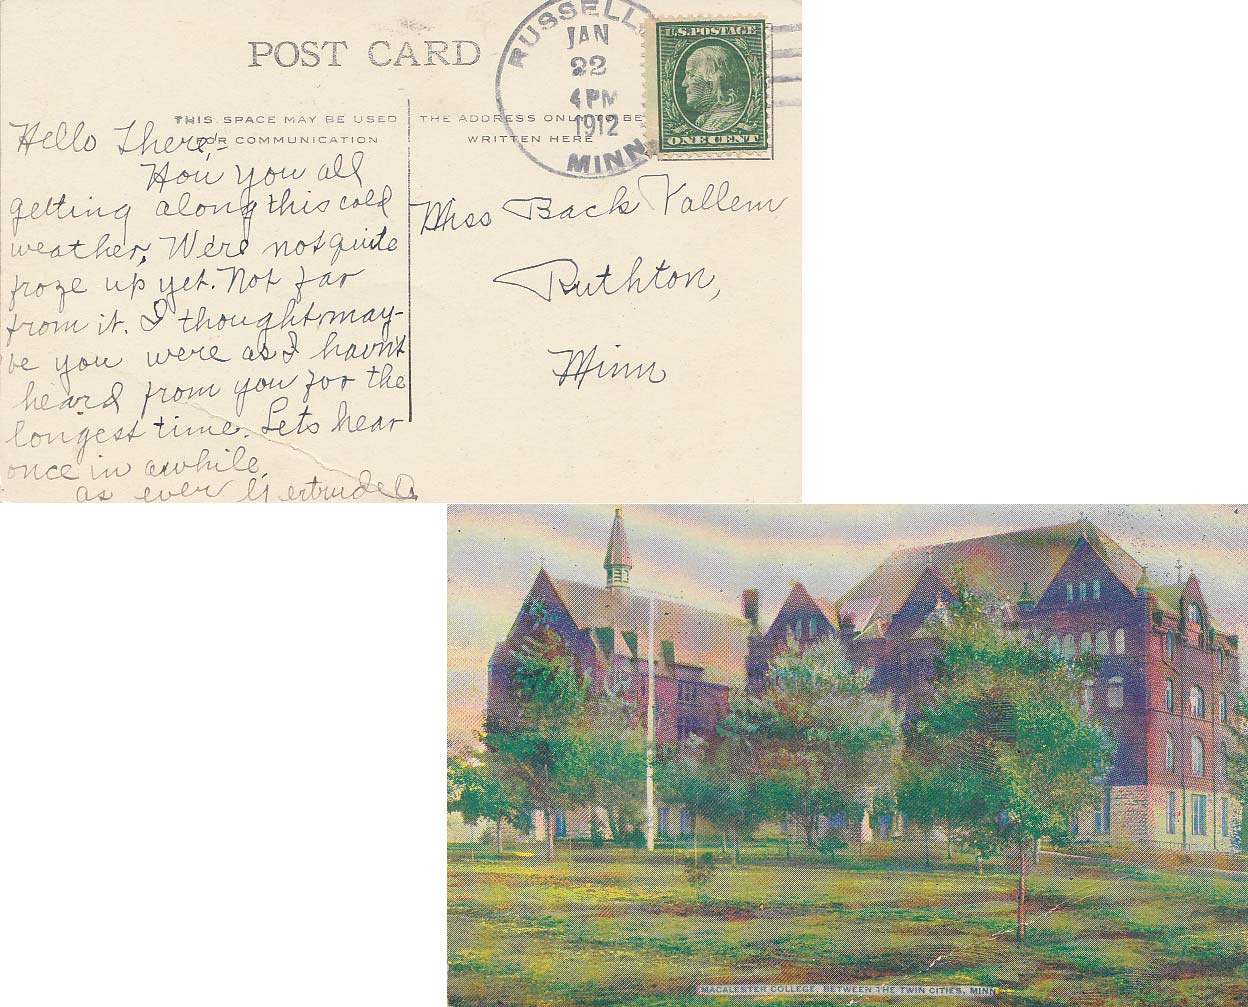 POST CARD
RUSSELL
JAN
22
4 PM
1912
MINN
U.S. POSTAGE
ONE CENT
THIS SPACE MAY BE USED
FOR COMMUNICATION
THE ADDRESS ONLY TO BE
WRITTEN HERE
Hello There:-
How you all
getting along this cold
weather, We're not quite
froze up yet. Not far
from it. I thought may-
be you were as I havn't
heard from you for the
longest time. Lets hear
once in awhile.
as ever Gertrude
Miss Back Vallem
Ruthton,
Minn
MACALESTER COLLEGE, BETWEEN THE TWIN CITIES, MINN